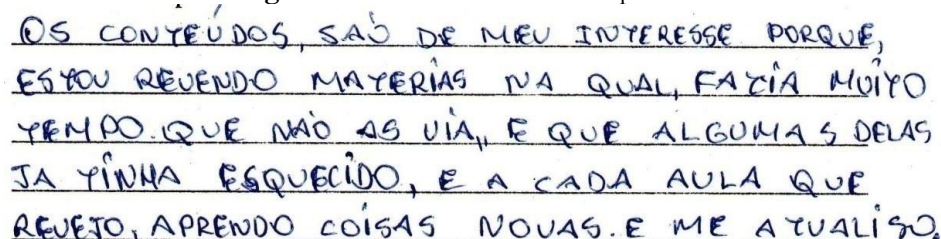 OS CONTEÚDOS, SAÕ DE MEU INTERESSE PORQUE,
ESTOU REVENDO MATERIAS NA QUAL, FAZIA MUITO
TEMPO. QUE NAÕ AS VIA, E QUE ALGUMAS DELAS
JA TINHA ESQUECIDO, E A CADA AULA QUE
REVEJO, APRENDO COISAS NOVAS. E ME ATUALISO.